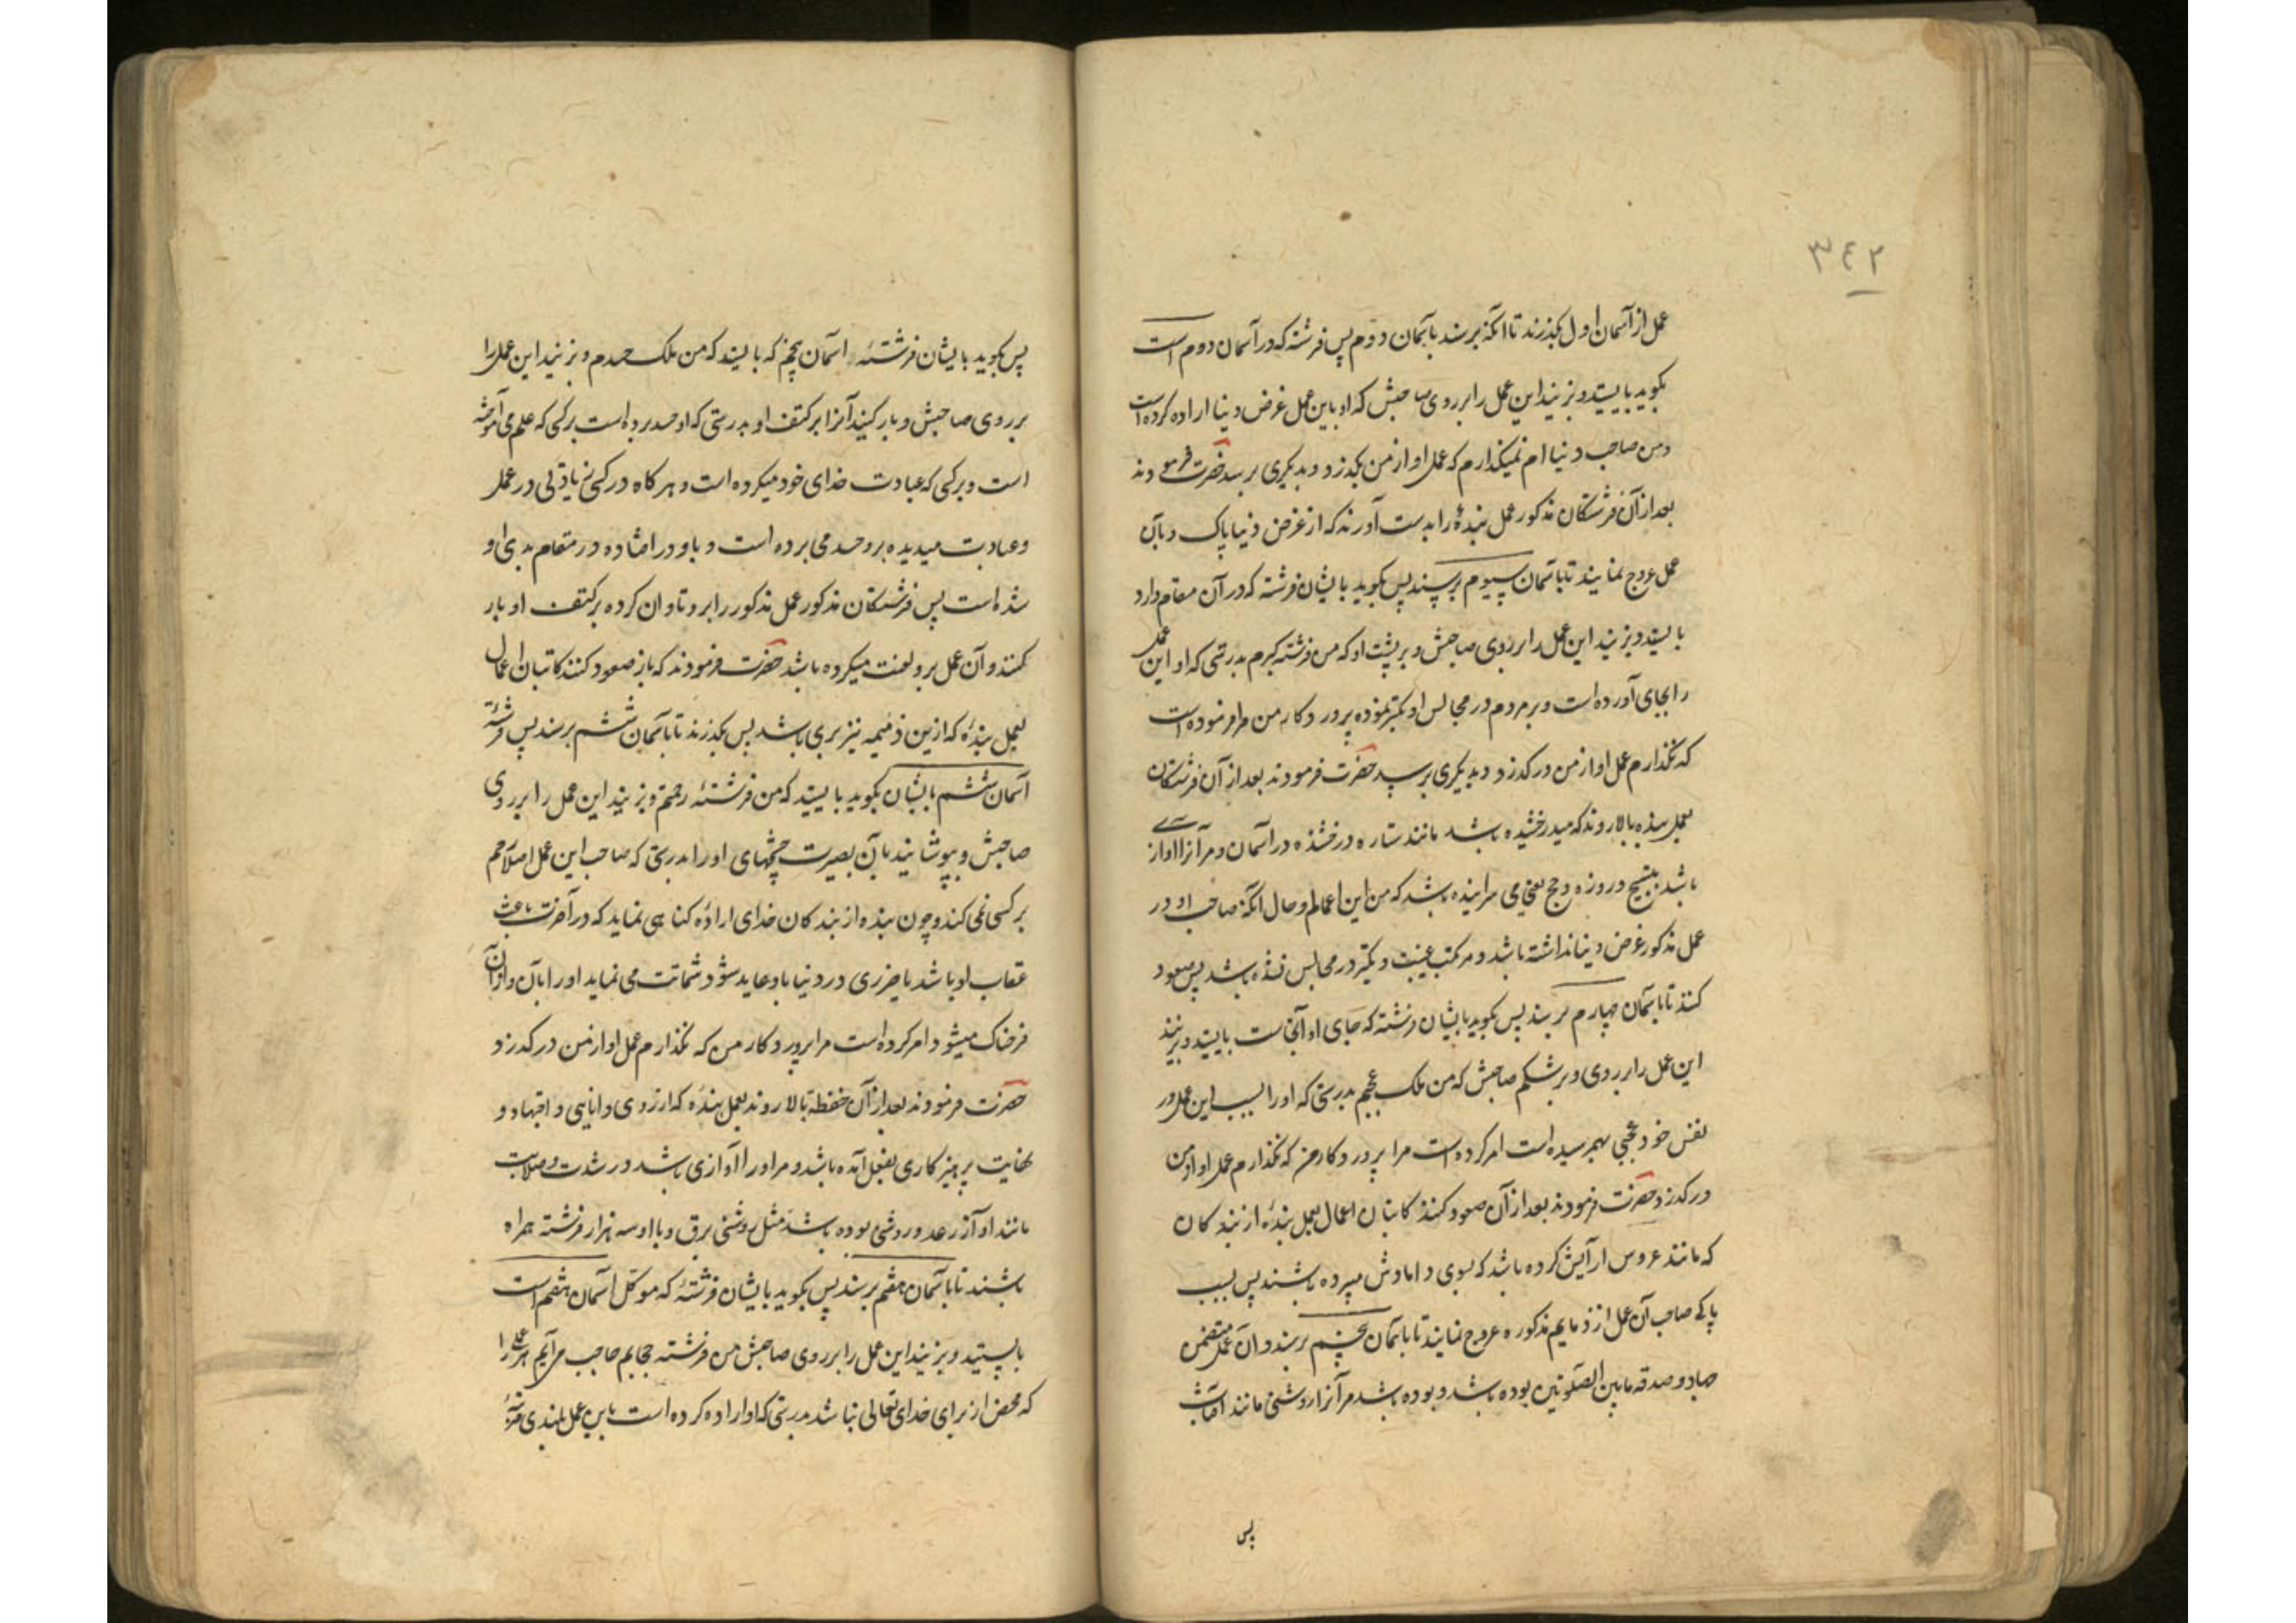 ٣٤٢
عمل از آسمان اول بگذرند تا آنکه برسند بآسمان دوم پس فرشته که در آسمان دوم است
بگوید بایستید و بزنید این عمل را بر روی صاحبش که او باین عمل غرض دنیا اراده کرده است
و من صاحب دنیا ام نمیگذارم که عمل او از من بگذرد و بدیگری برسد حضرت فرمودند
بعد از آن فرشتگان مذکور عمل بندۀ را بدست آورند که از غرض دنیا پاک و بآن
عمل عروج نمایند تا بآسمان سیوم برسند پس بگوید بایشان فرشته که در آن مقام دارد
بایستید و بزنید این عمل را بر روی صاحبش و بر پشت او که من فرشته کبرم بدرستی که او این عمل
را بجای آورده است و بر مردم در مجالس او تکبر نموده پروردکار من مرا فرموده است
که نگذارم عمل او از من در گذرد و بدیگری برسد حضرت فرمودند بعد از آن فرشتگان
بعمل بنده بالا روند که میدرخشیده باشد مانند ستاره درخشنده در آسمان و مر آنرا آواز
باشد بتسبیح و روزه و حج یعنی می سراینده باشد که من این اعمالم و حال آنکه صاحب او در
عمل مذکور غرض دنیا نداشته باشد و مرتکب غیبت و تکبر در مجالس نشده باشد پس صعود
کنند تا بآسمان چهارم برسند پس بگوید بایشان فرشته که جای او آنجاست بایستید و بزنید
این عمل را بر روی و بر شکم صاحبش که من ملک عجبم بدرستی که او را بسبب این عمل در
نفس خود عجبی بهم رسیده است امر کرده است مرا پروردکار من که نگذارم عمل او از من
در گذرد حضرت فرمودند بعد از آن صعود کنند کاتبان اعمال بعمل بندۀ از بندکان
که مانند عروس آرایش کرده باشد که بسوی دامادش میبرده باشند پس بسبب
پاکی صاحب آن عمل از ذمایم مذکوره عروج نمایند تا بآسمان پنجم برسند و آن عمل متضمن
جهاد و صدقه مابین الصلوتین بوده باشد و بوده باشد مر آنرا روشنی مانند آفتاب
پس
پس بگوید بایشان فرشتۀ آسمان پنجم که بایستید که من ملک حسدم و بزنید این عمل را
بر روی صاحبش و بار کنید آنرا بر کتف او بدرستی که او حسد برده است بر کسی که علم می آموخته
است و بر کسی که عبادت خدای خود میکرده است و هرکاه در کسی زیادتی در عمل
و عبادت میدیده برو حسد می برده است و باو در افتاده در مقام بدی او
شده است پس فرشتگان مذکور عمل مذکور را برو تاوان کرده بر کتف او بار
کنند و آن عمل برو لعنت میکرده باشد حضرت فرمودند که باز صعود کنند کاتبان اعمال
بعمل بندۀ که ازین ذمیمه نیز بری باشد پس بگذرند تا بآسمان ششم برسند پس فرشتۀ
آسمان ششم بایشان بگوید بایستید که من فرشتۀ رحمتم و بزنید این عمل را بر روی
صاحبش و بپوشانید بآن بصیرت چشمهای او را بدرستی که صاحب این عمل اصلا رحم
بر کسی نمی کند و چون بنده از بندکان خدای ارادۀ کناهی نماید که در آخرت باعث
عقاب او باشد یا ضرری در دنیا باو عاید شود شماتت می نماید او را بآن و از آن
فرحناک میشود امر کرده است مرا پروردکار من که نگذارم عمل او از من در گذرد
حضرت فرمودند بعد از آن حفظه بالا روند بعمل بندۀ که از روی دانایی و اجتهاد و
نهایت پرهیزکاری بفعل آمده باشد و مر او را آوازی باشد در شدت و صلابت
مانند آواز رعد و روشنی بوده باشد مثل روشنی برق و با او سه هزار فرشته همراه
باشند تا بآسمان هفتم برسند پس بگوید بایشان فرشتۀ که موکل آسمان هفتم است
بایستید و بزنید این عمل را بر روی صاحبش من فرشته حجابم حاجب می آیم هر عملی را
که محض از برای خدای تعالی نباشد بدرستی که او اراده کرده است باین عمل بلندی مرتبۀ